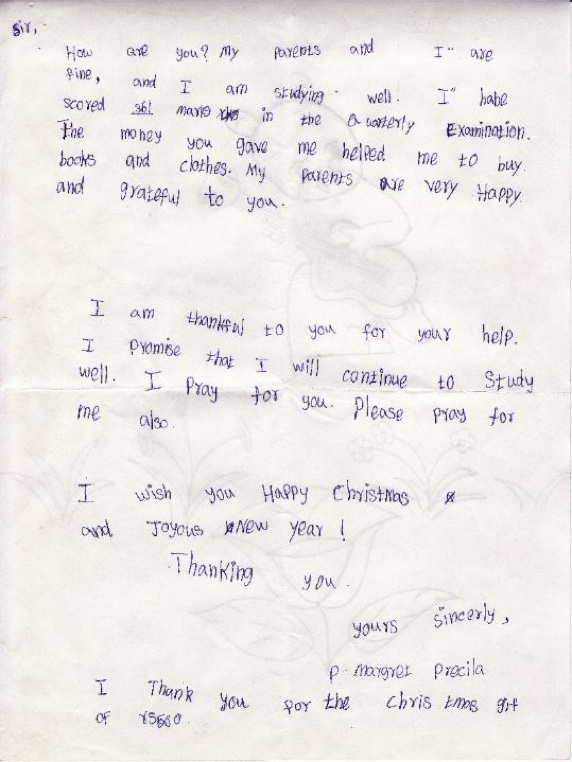 Sir,
How are you? My Parents and I" are
fine, and I am studying well. I" habe
scored 361 marks in the Quarterly Examination.
The money you gave me helped me to buy.
books and clothes. My Parents are very Happy.
and grateful to you.
I am thankful to you for your help.
I Promise that I will continue to Study
well. I Pray for you. Please pray for
me also.
I wish you Happy Christmas
and Joyous New year !
Thanking you.
yours sincerly,
P. Margret Precila
I Thank you for the Christmas gift
of